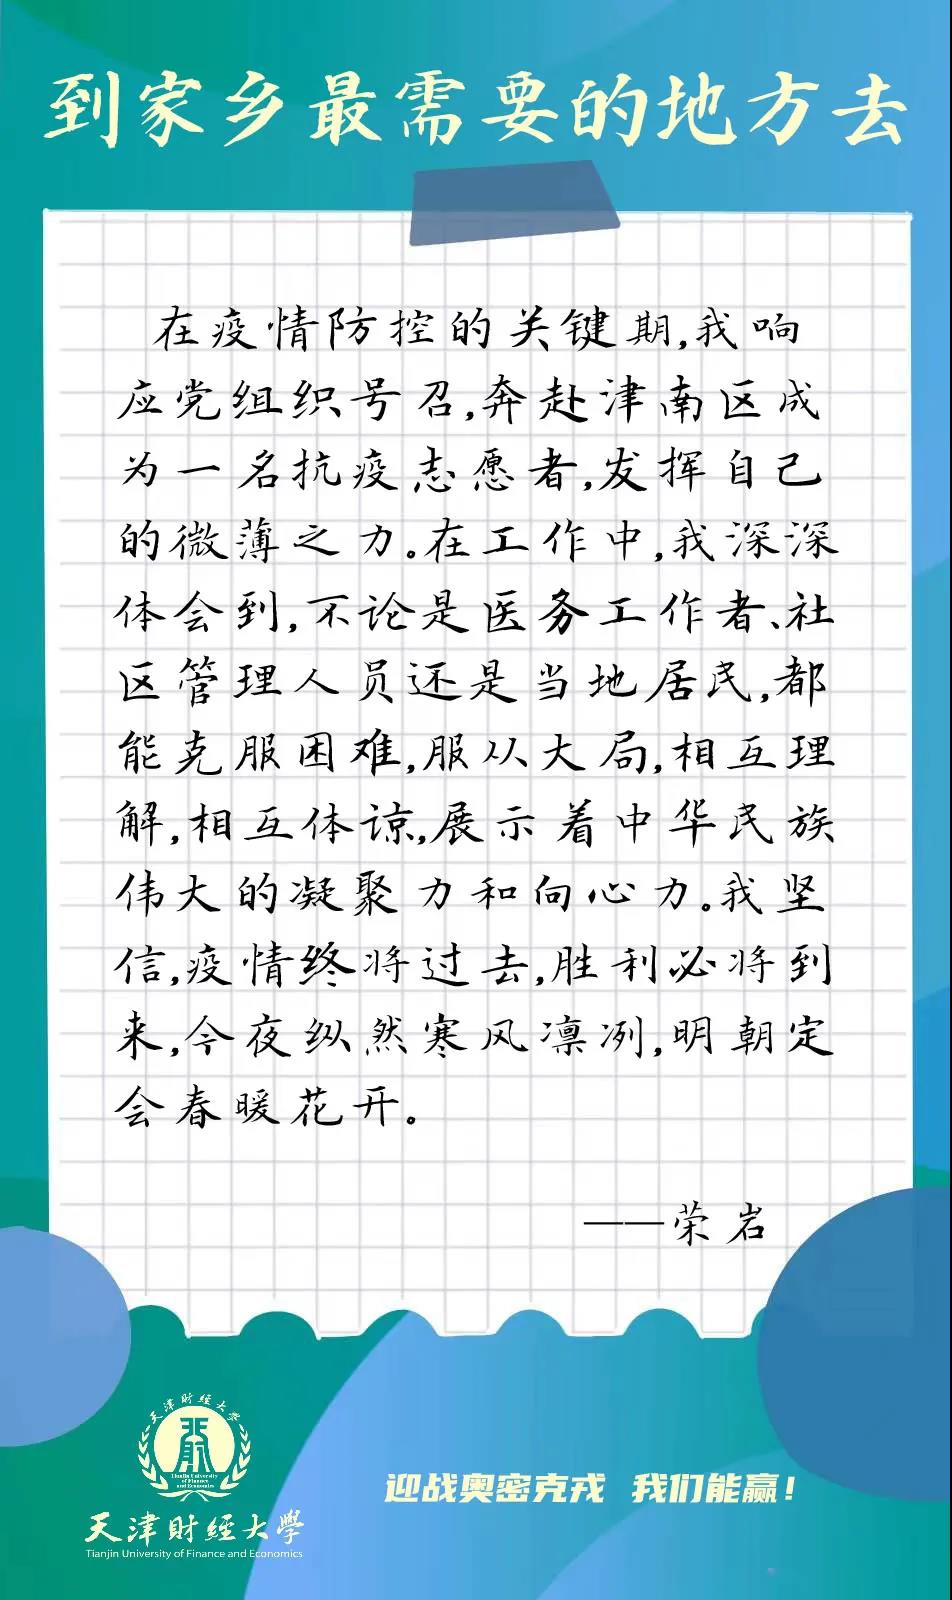 到家乡最需要的地方去
在疫情防控的关键期,我响
应党组织号召,奔赴津南区成
为一名抗疫志愿者,发挥自己
的微薄之力。在工作中,我深深
体会到,不论是医务工作者、社
区管理人员还是当地居民,都
能克服困难,服从大局,相互理
解,相互体谅,展示着中华民族
伟大的凝聚力和向心力。我坚
信,疫情终将过去,胜利必将到
来,今夜纵然寒风凛冽,明朝定
会春暖花开。
——荣岩
天津财经大学
Tianjin University
of Finance
and Economics
天津财经大学
Tianjin University of Finance and Economics
迎战奥密克戎 我们能赢!